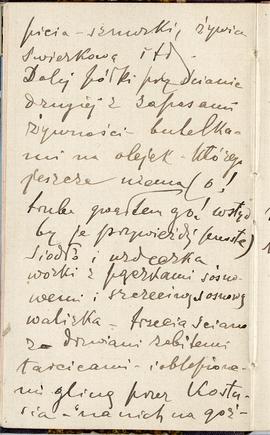 picia – sznurki, żywica
świerkowa itd.
Dalej półki przy ścianie
drugiej z zapasami
żywności – butelka-
mi na olejek – którego
jeszcze niema (o!
trzeba go
by je przywieźdź
siodło i uzdeczka
worki z pączkami sosno-
wemi i szczeciną sosnową
walizka – trzecia ściana
z drzwiami zabitemi
tarcicami – i oblepio-
nemi gliną przez Kostu-
sia – na nich na goź-